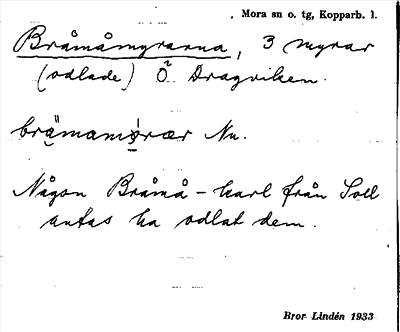 Mora sn o. tg, Kopparb. l.
Bråmåmyrarna, 3 myrar
(odlade) Ö. Dragviken.
Nu.
Någon Bråmå-karl från Soll
antas ha odlat dem.
Bror Lindén 1933